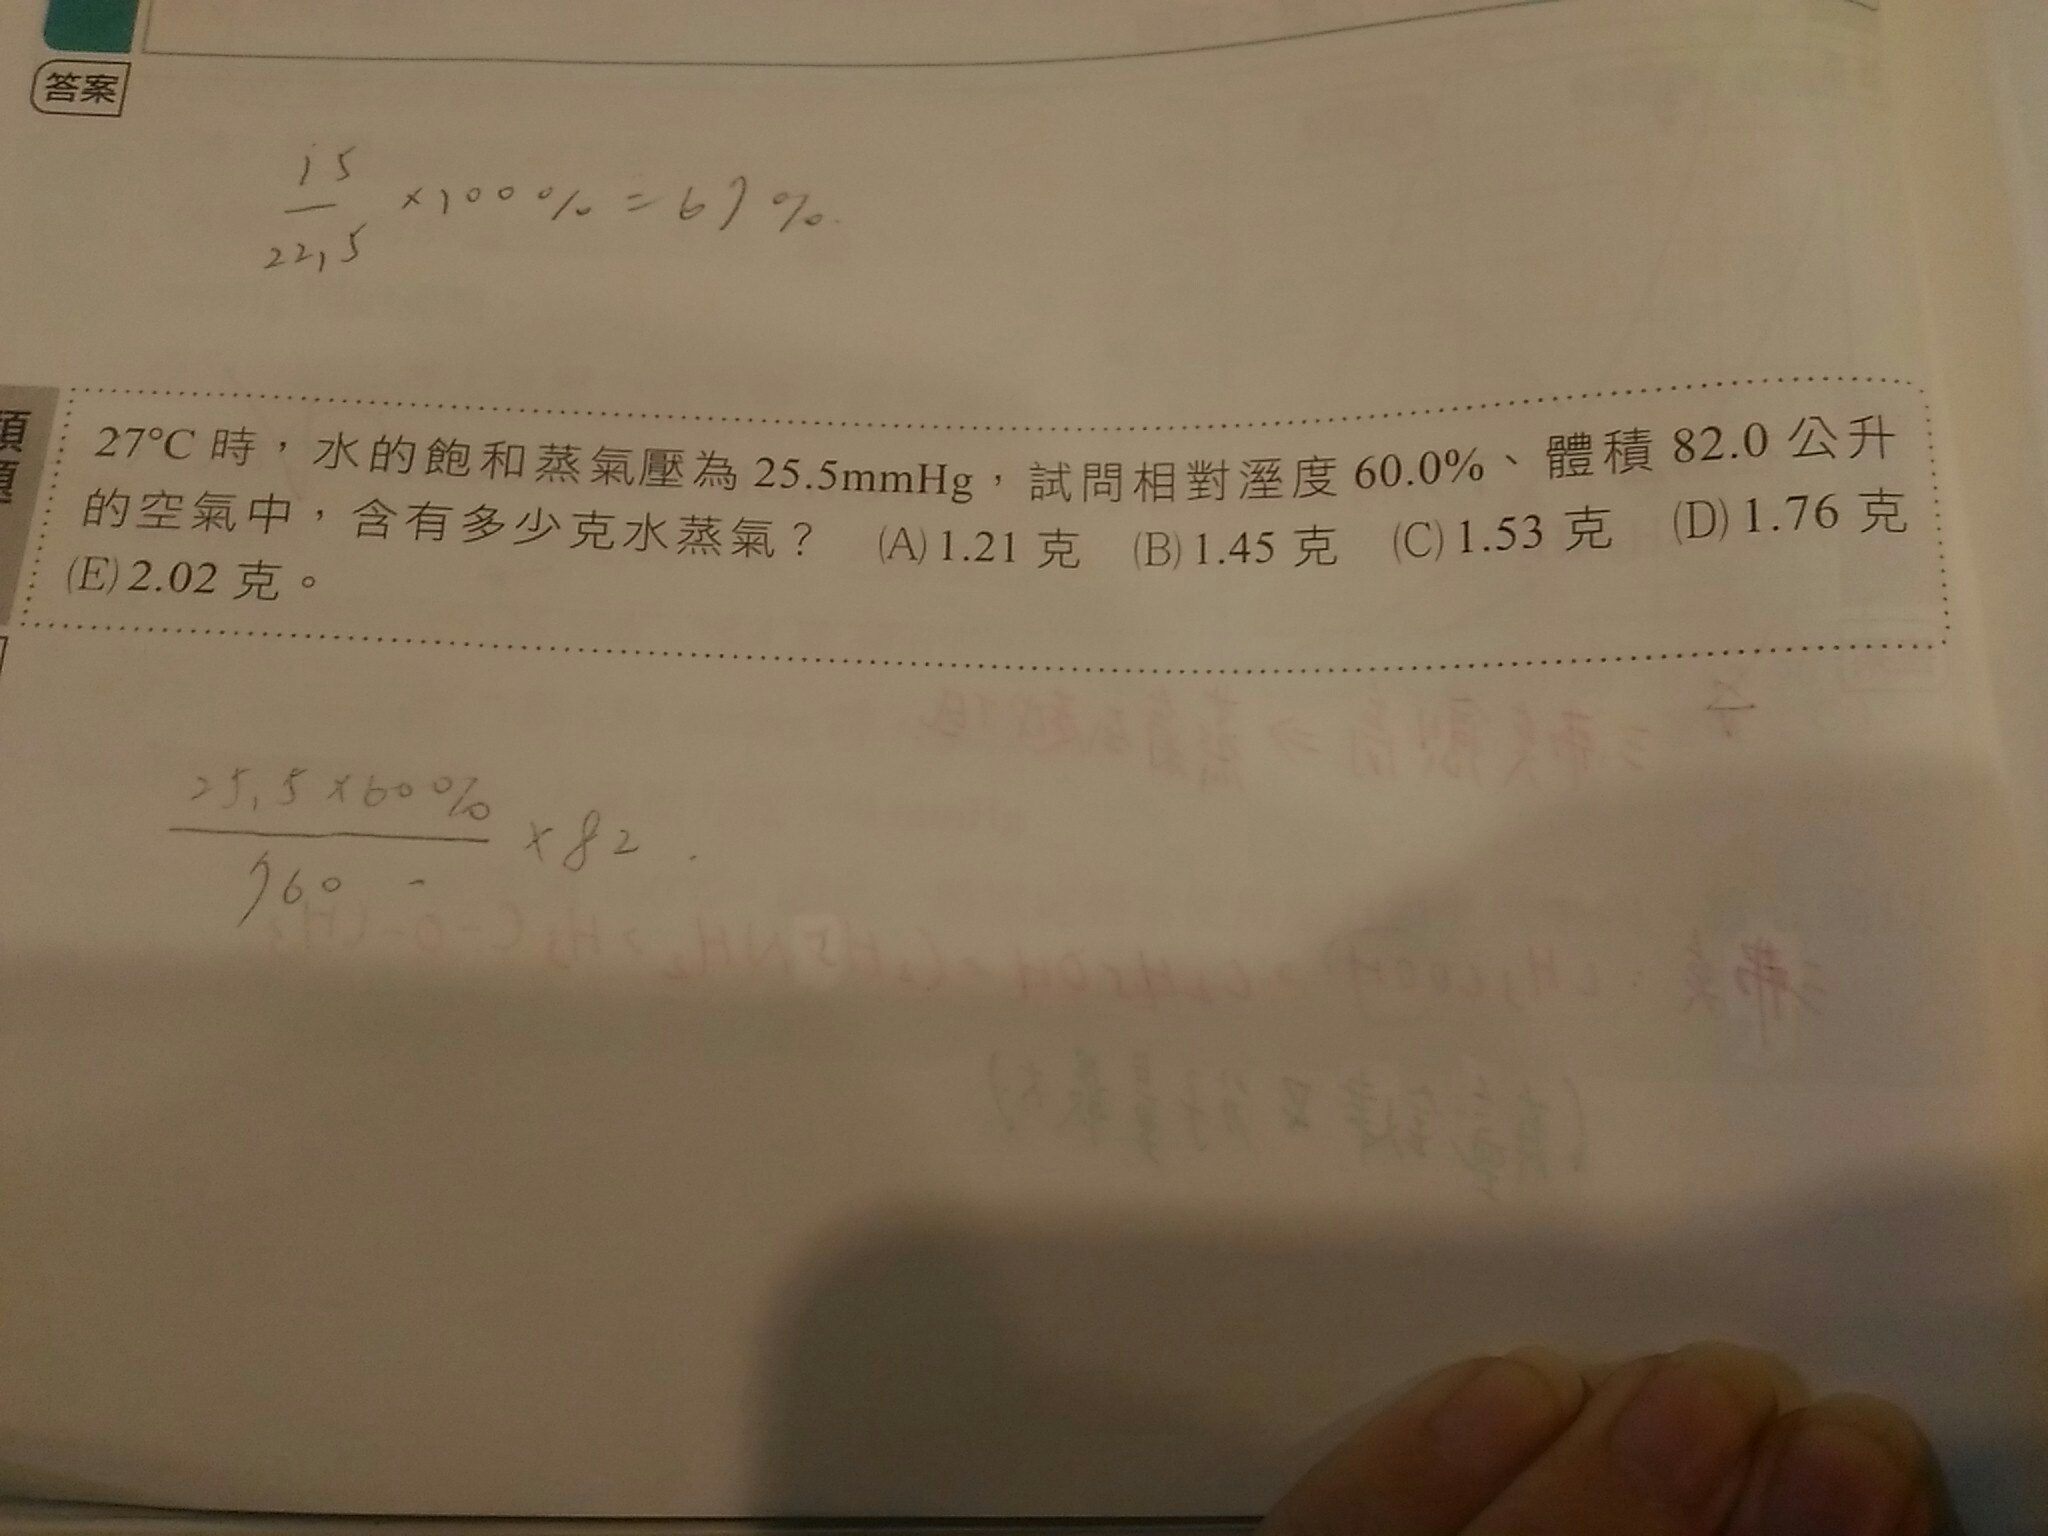 答案
15
— ×100% = 67%.
22.5
27°C 時，水的飽和蒸氣壓為 25.5mmHg，試問相對溼度 60.0%、體積 82.0 公升
的空氣中，含有多少克水蒸氣？ (A) 1.21 克 (B) 1.45 克 (C) 1.53 克 (D) 1.76 克
(E) 2.02 克。
25.5×60%
—— ×82.
760